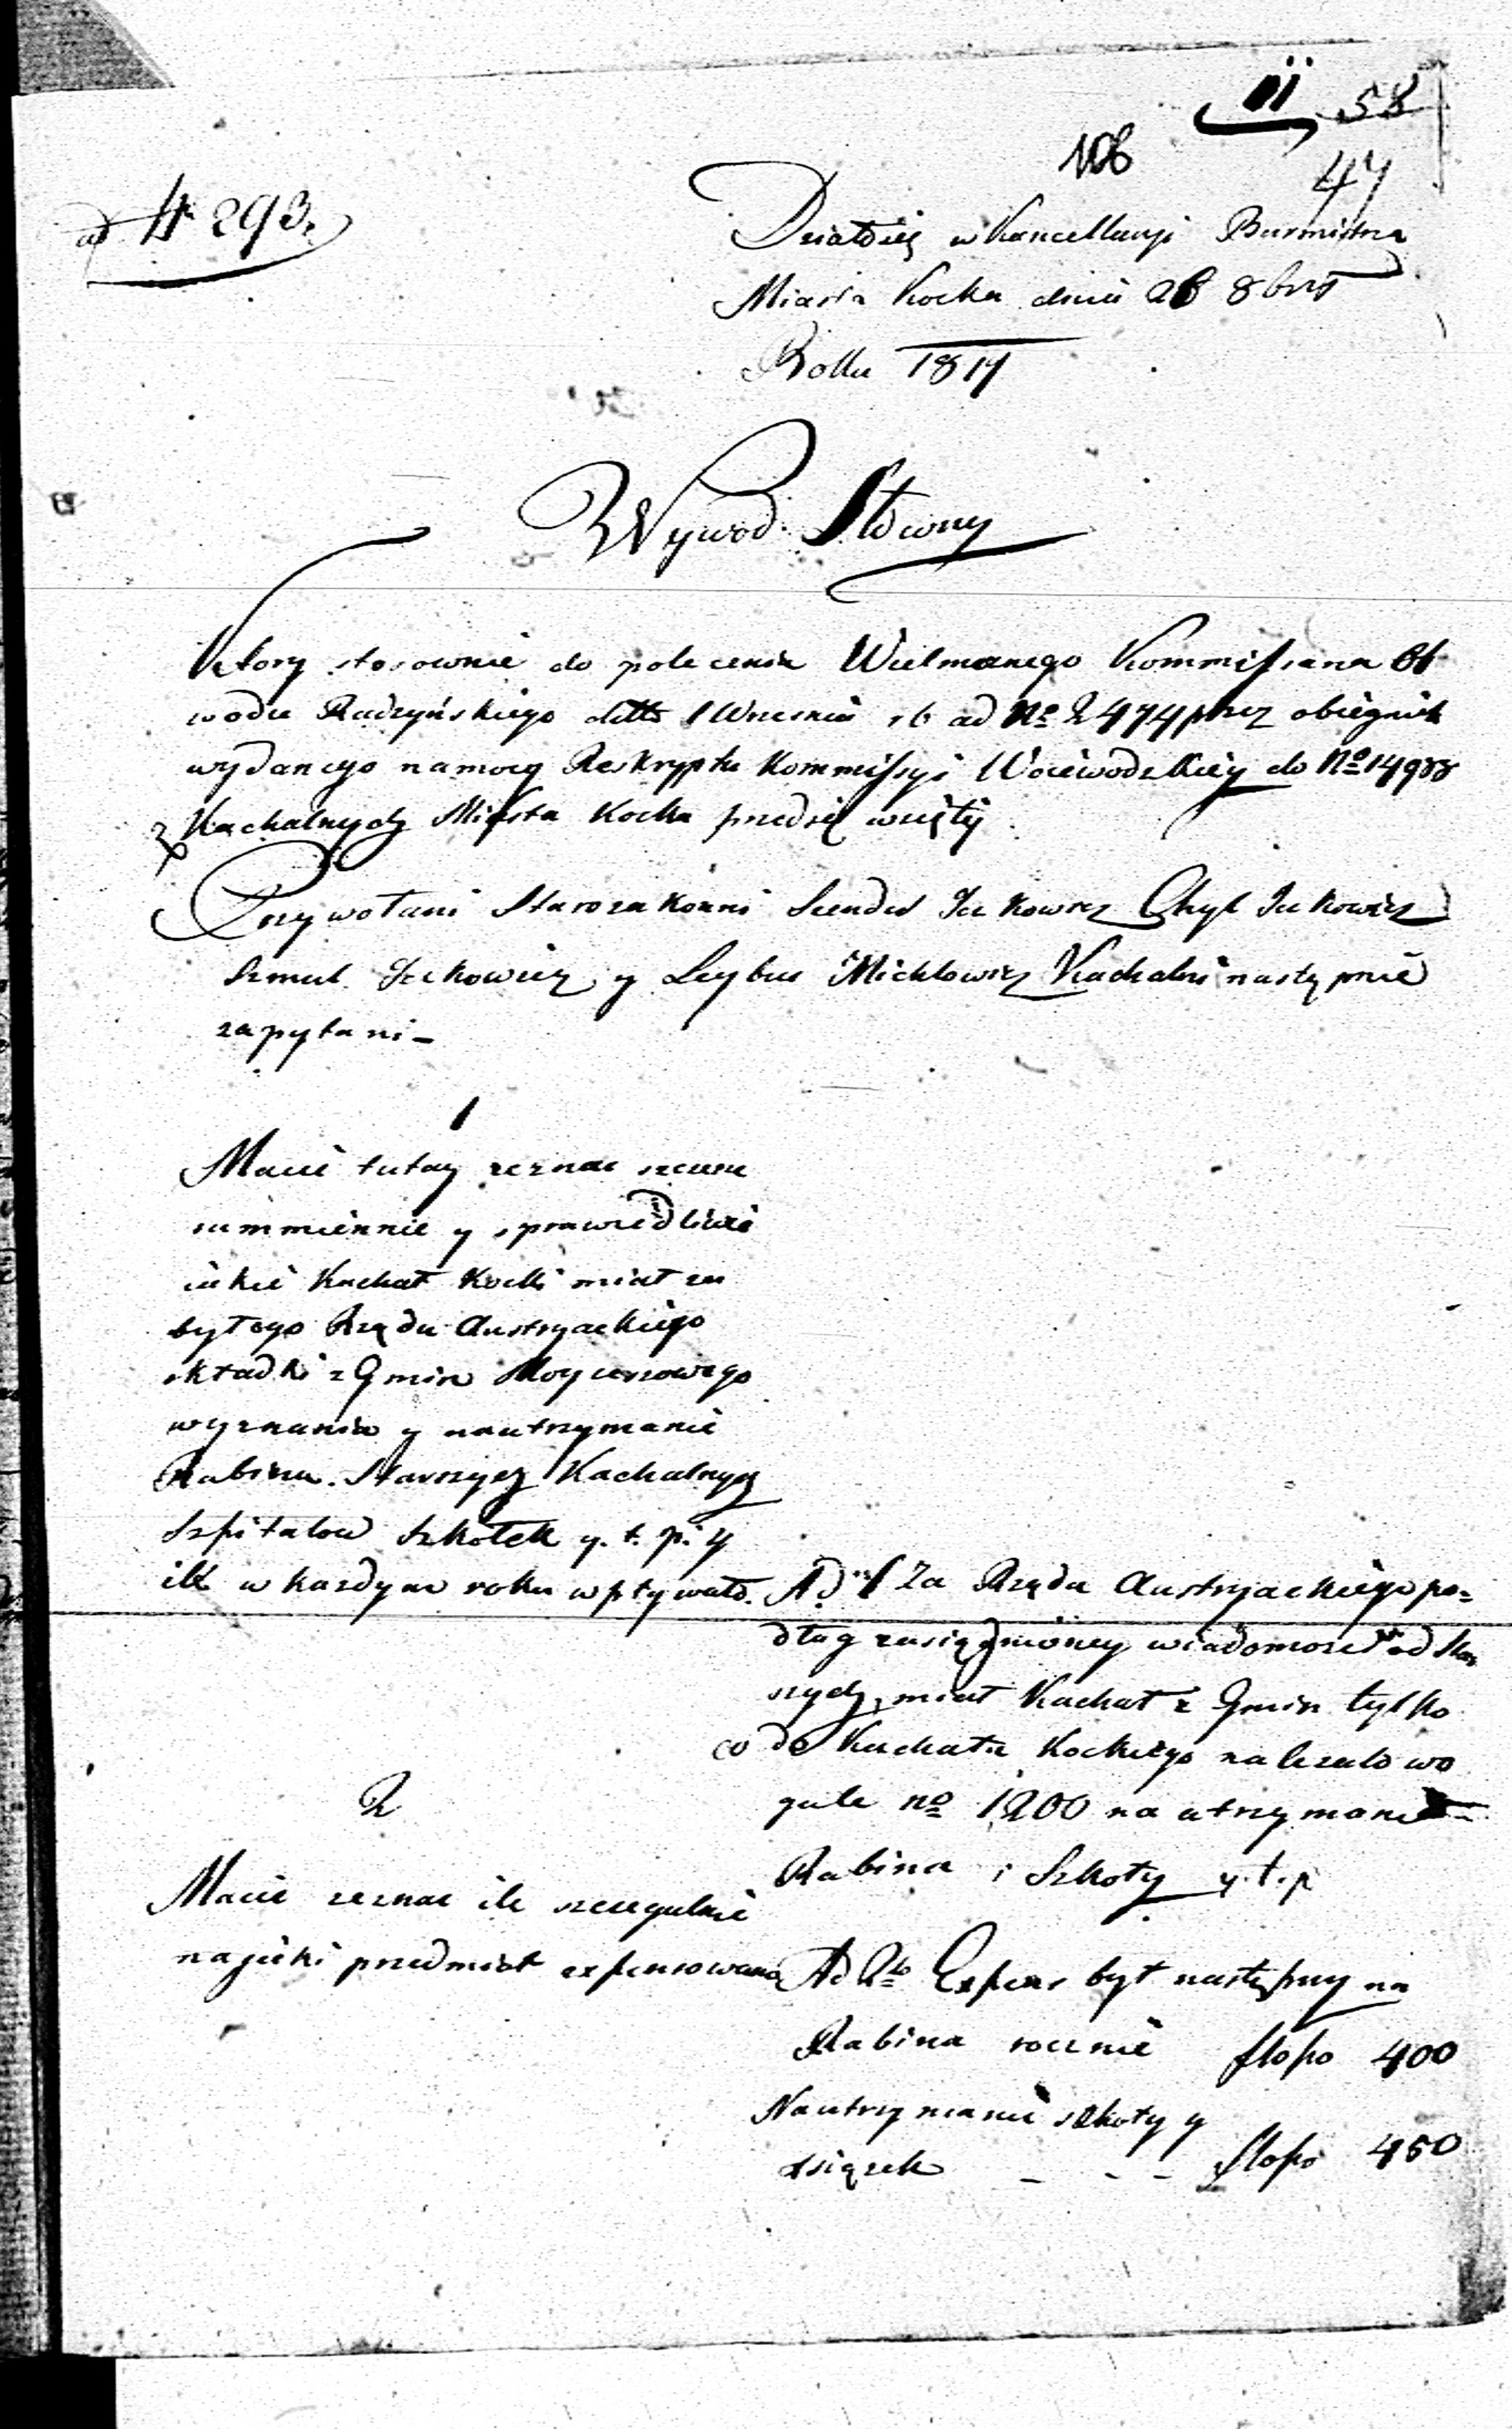 11 58
106
47
ad N 293.
Działo się w Kancellaryi Burmistrza
Miasta Kocka dnia 26 8bris
Roku 1817
Wywod Słowny
Ktory stosownie do polecenia Wielmoznego Kommissarza Ob
wodu Radzyńskiego ditto 1 Wrzesnia rb ad No 2474 przez obiegnik
wydanego na mocy Reskryptu Kommissyi Woiewodzkiey do No 14988
z Kachalnych Miasta Kocka przedsię wzięty
Przywołani Starozakonni Sendel Jckowicz Chyl Jckowicz
Szmul Jckowicz y Leybus Michlowicz Kachalni nastąpnie
zapytani –
1
Macie tutay zeznac szczerze
summiennie y sprawiedliwie
iakie Kachał Kocki miał za
byłego Rządu Austryackiego
składki z Gmin Moyzeszowego
wyznania y na utrzymanie
Rabina. Starszych Kachalnych
Szpitalow Szkołek y. t. p. y
ile w kazdym roku wpływało.
Ad 1 Za Rządu Austryackiego po=
dług zasiągnioney wiadomosci od Star
szych, miał Kachał z Gmin tylko
co do Kachału Kockiego nalezało wo
gule no 1200 na utrzymanie
Rabina i Szkoły y. t. p
2
Macie zeznac ile szczegulnie
na jaki przedmiot expensowano
Ad 2do Expens był nastąpny na
Rabina rocznie flopo 400
Na utrzymanie szkoły y
ksiązek – – – flopo 450